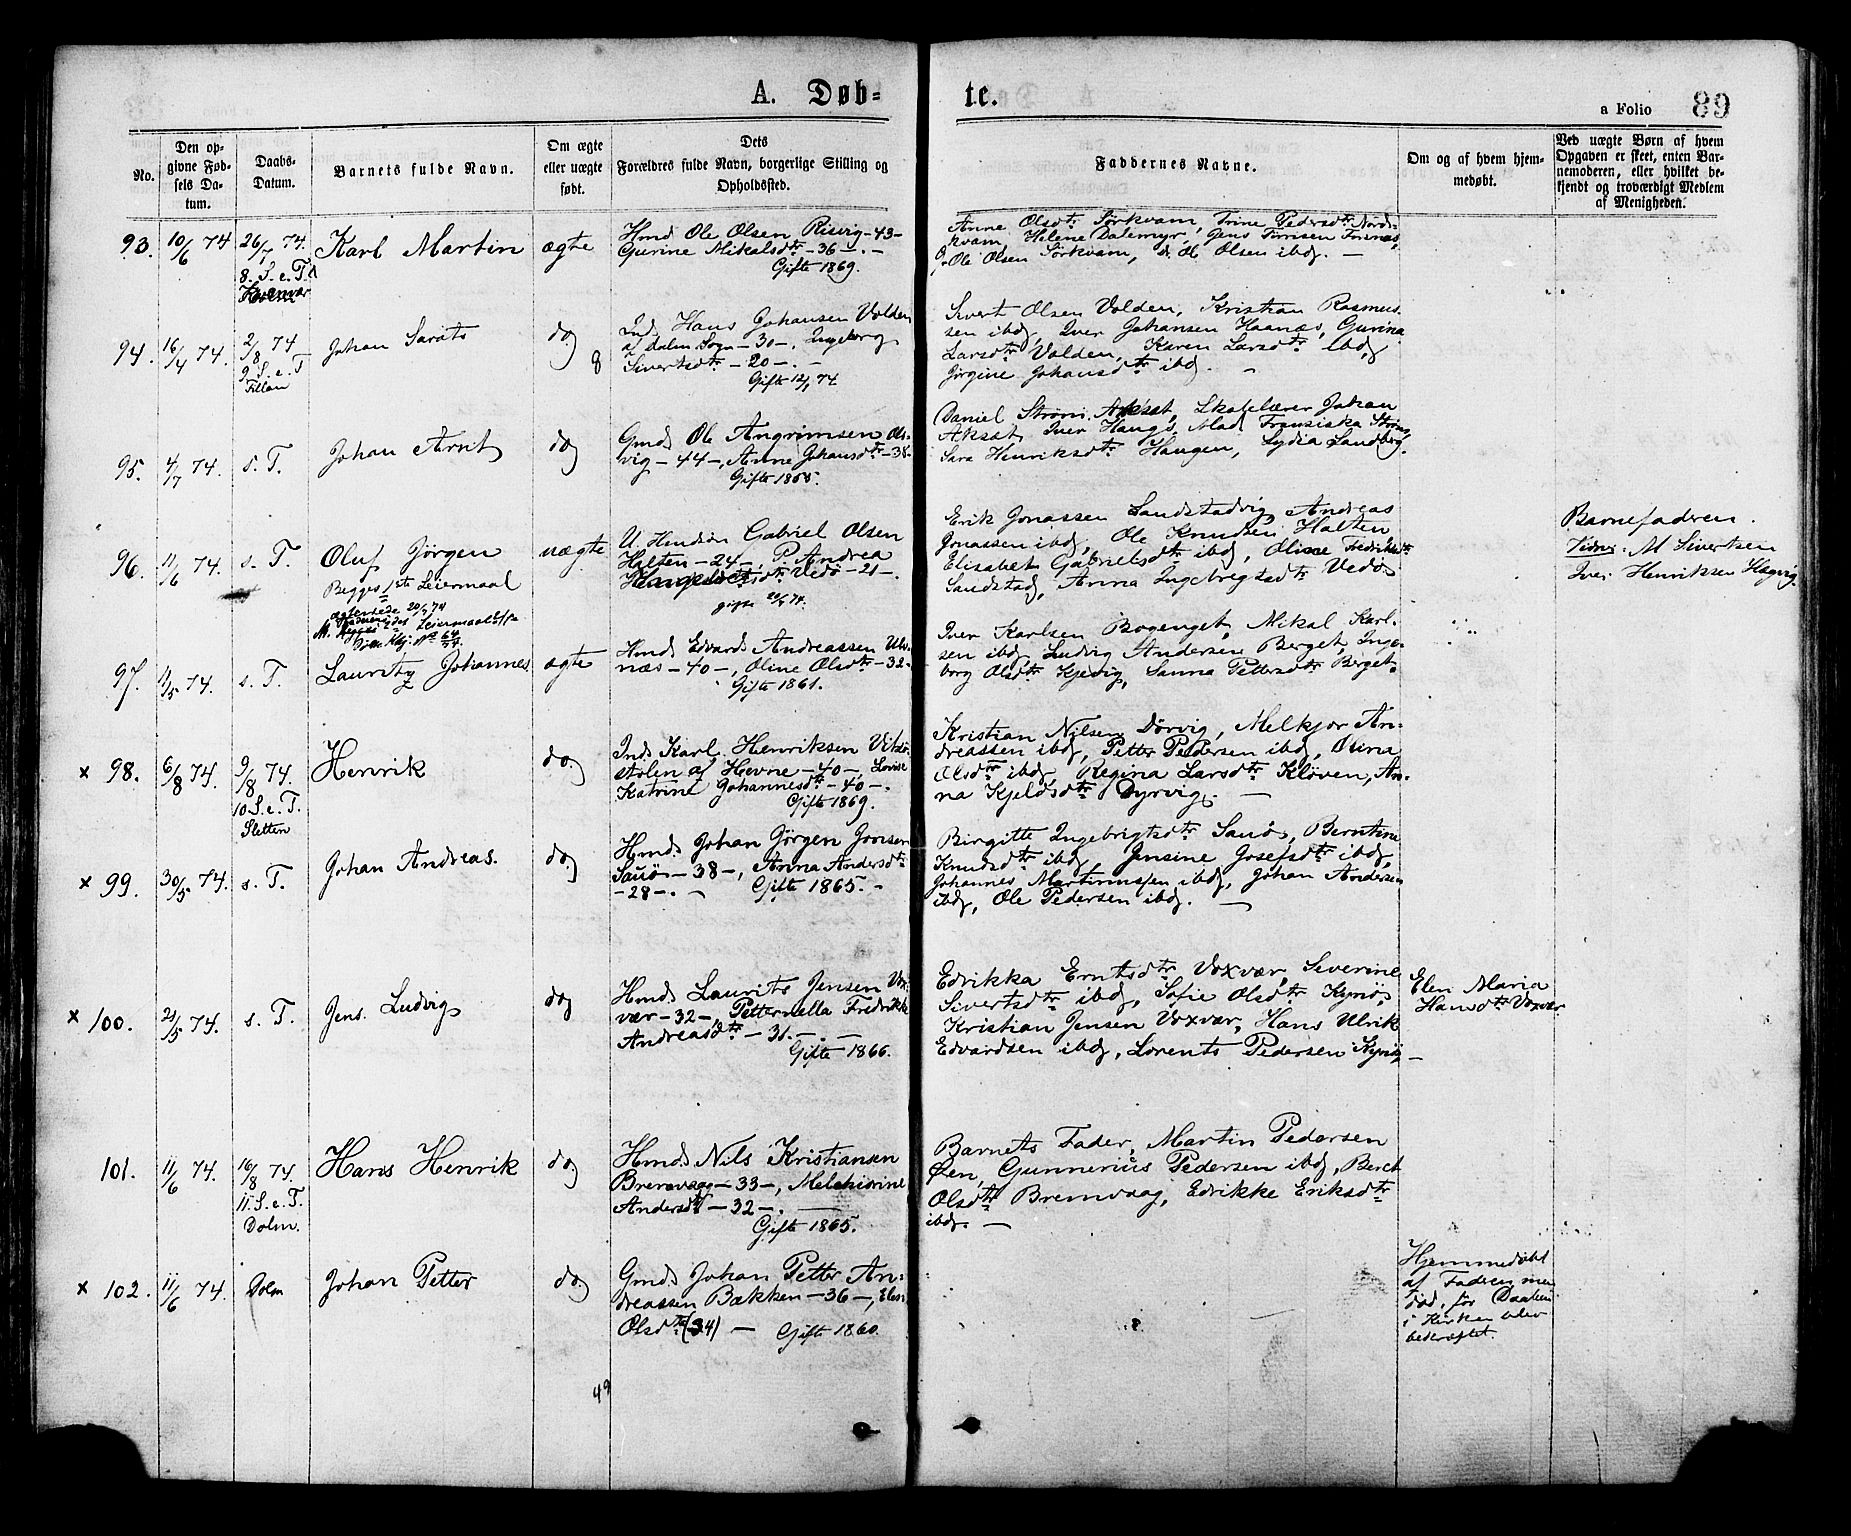 A. Døb=
te.
a Folio 89
No.
Den op-
givne Fød-
sels Da-
tum.
Daabs-
Datum.
Barnets fulde Navn.
Om ægte
eller uægte
født.
Dets
Forældres fulde Navn, borgerlige Stilling og
Opholdssted.
Faddernes Navne.
Om og af hvem hjem-
medøbt.
Ved uægte Børn af hvem
Opgaven er skeet, enten Bar-
nemoderen, eller hvilket be-
kjendt og troværdigt Medlem
af Menigheden.
93. 10/6 74 26/7 74. Karl Martin ægte
8. S. e. T.
Hmd Ole Olsen Risvig - 43 -
Gurine Mikalsdtr - 36 -. -
Gifte 1869.
Anne Olsdtr Sørkvam, Trine Pedersdtr Nord-
kvam, Helene Dalemyr, Jens Tønsen Frisnes,
Ole Olsen Sørkvam, Ol Olsen ibd. -
94. 16/4 74. 2/8 74 Johan Sarats do
9. S. e. T
Fillan
8
Ind. Hans Johansen Volden
af Dalm Sogn - 30 -, Ingeborg
Sivertsdtr - 20 -. -
Gifte 12/1 74.
Sivert Olsen Volden, Kristian Rasmus-
sen ibd, Iver Johansen Haanæs, Gurina
Larsdtr Volden, Karen Larsdtr ibd,
Jørgine Johansdtr ibd. -
95. 4/7 74. s. T. Johan Arnt do
Gmd Ole Angrimsen Ols-
vig - 44 -, Anne Johansdtr - 38 -
Gifte 1865.
Daniel Strøm Aksat, Skolelærer Johan
Aksat, Iver Haugs, Mad. Fransiska Strøm,
Sara Henriksdtr Haugen, Lydia Sandberg.
96. 11/6 74. s. T. Oluf Jørgen uægte
Begges 1ste Leiermaal
ægteviede 20/9 74
U. Hmdsøn Gabriel Olsen
Halten - 24 -, P. Andrea
Vedø - 21 -.
gifte 20/9 74.
Erik Jonassen Sandstadvig, Andreas
Jonassen ibd, Ole Knudsen Halten
Elisabet Gabrielsdtr ibd, Olisse Fredriksdtr
Sandstad, Anna Ingebrigtsdtr Vedø.
Barnefaderen.
Vidner: M Sivertsen
Iver Henriksen Hagvig.
97. 11/5 74. s. T. Lauritz Johannes ægte
Hmd Edvard Andreassen Uls-
næs - 40 -, Oline Olsdtr - 32 -
Gifte 1861.
Iver Karlsen Bogenget, Mikal Karl-
sen ibd, Ludvig Andersen Berget, Inge-
borg Olsdtr Kjevig, Sanna Pettersdtr Berget.
x 98. 6/8 74. 9/8 74. Henrik do.
10. S. e. T.
Sletten
Ind. Karl Henriksen Vitsø-
stølen af Hevne - 40 -, Lovise
Katrine Johannesdtr - 40 -.
Gifte 1869.
Kristian Nilsen Dørvig, Melkjor An-
dreassen ibd, Petter Pedersen ibd, Olina
Olsdtr ibd, Regina Larsdtr Kløven, An-
na Kjeldsdtr Dyrvig. -
x 99. 30/5 74. s. T. Johan Andreas. do.
Hmd. Johan Jørgen Jonsen
Sauø - 38 -, Anna Andersdtr
- 28 -. - Gifte 1865. -
Birgitte Ingebrigtsdtr Sauø, Berntine
Knudsdtr ibd, Jensine Josefsdtr ibd,
Johannes Martinussen ibd, Johan Andersen
ibd, Ole Pedersen ibd. -
x 100. 21/5 74. s. T. Jens Ludvig do
Hmd. Laurits Jensen Vox-
vær - 32 -, Petternella Fredrikke
Andreasdtr - 31. - -
Gifte 1866.
Edrikka Erntsdtr Voxvær, Siverine
Sivertsdtr ibd, Sofie Olsdtr Kyrø,
Kristian Jensen Voxvær, Hans Ulrik
Edvardsen ibd, Lorents Pedersen Kyrø, -
Elen Maria
Hansdtr Voxvær
101. 11/6 74. 16/8 74. Hans Henrik do
11. S. e. T.
Dolm.
Hmd. Nils Kristiansen
Bremvaag - 33 -, Melchiorine
Andersdtr - 32 -. -
Gifte 1865.
Barnets Fader, Martin Pedersen
Øen, Gunnerius Pedersen ibd, Beret
Olsdtr Bremvaag, Edrikke Eriksdtr
ibd. -
x 102. 11/6 74. Dolm Johan Petter do
Gmd. Johan Petter An-
dreassen Bækken - 36 -, Elen
Olsdtr (34) - Gifte 1860.
Hjemmedøbt
af Faderen, men
død, før Daaben
i Kirken blev
bekræftet.
49